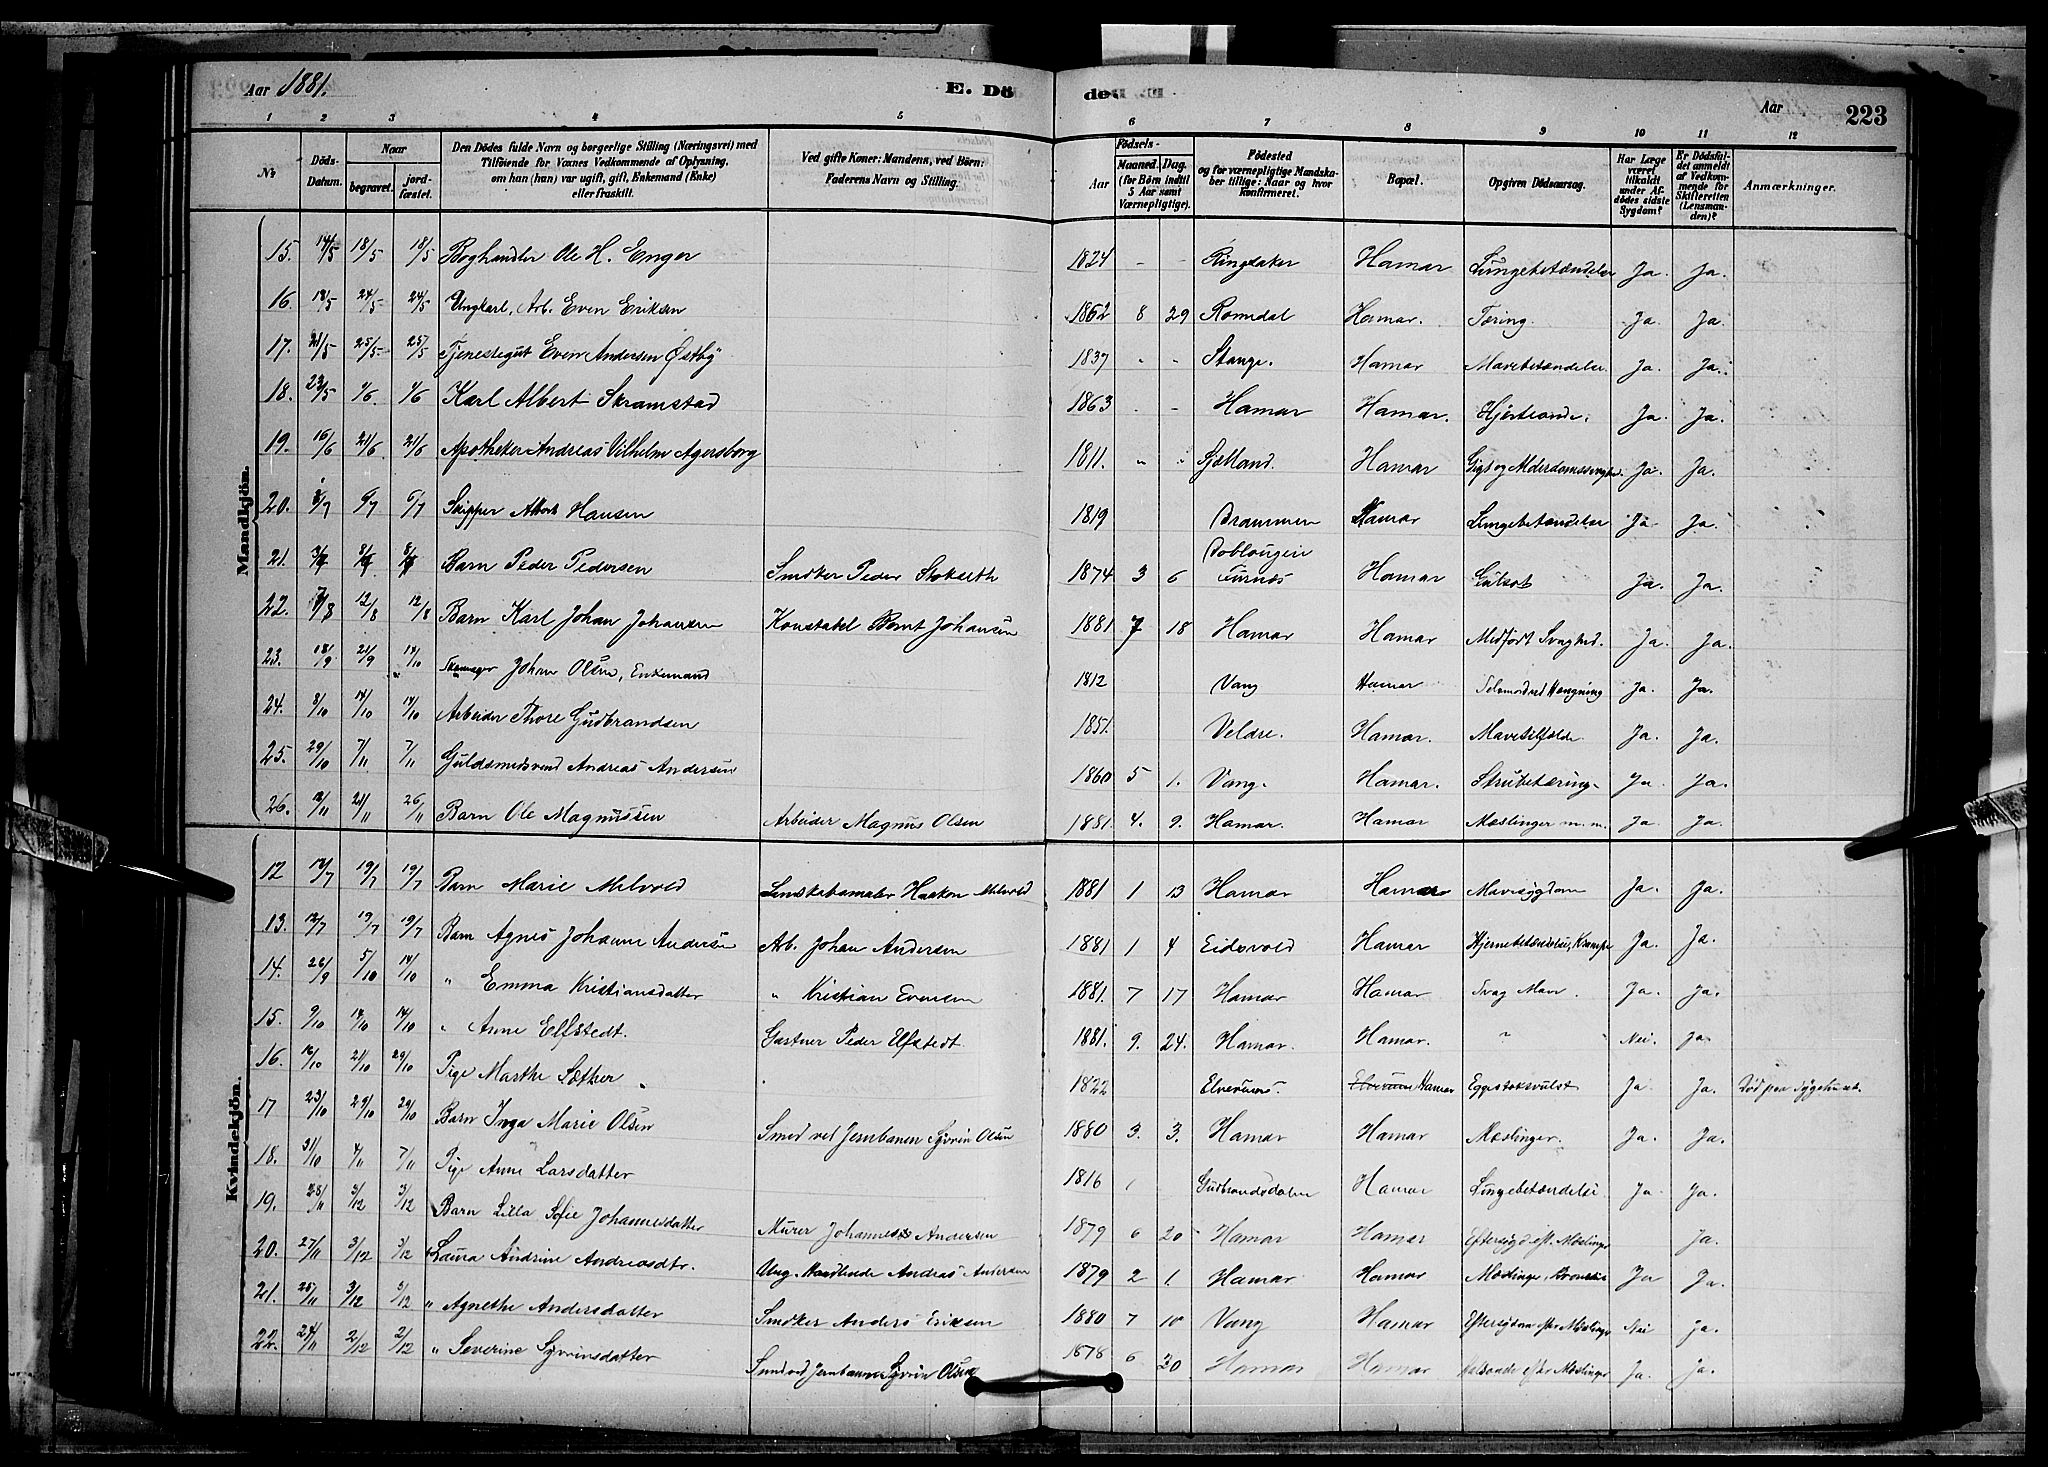 Aar 1881. E. Dö
døde Aar 223
1 2 3 4 5 6 7 8 9 10 11 12
No. Döds-Datum. Naar begravet. jord-fæstet. Den Dödes fulde Navn og borgerlige Stilling (Næringsvei) med Tilföiende for Voxnes Vedkommende af Oplysning, om han (hun) var ugift, gift, Enkemand (Enke) eller fraskilt. Ved gifte Koner: Mandens, ved Börn: Faderens Navn og Stilling. Födsels- Aar Maaned. Dag. (for Börn indtil 5 Aar samt Værnepligtige). Födested og for værnepligtige Mandskaber tillige: Naar og hvor konfirmeret. Bopæl. Opgiven Dödsaarsag. Har Læge været tilkaldt under Afdödes sidste Sygdom? Er Dödsfaldet anmeldt af Vedkommende for Skifteretten (Lensmanden)? Anmærkninger.
Mandkjön.
15. 14/5 18/5 18/5 Boghandler Ole H. Enger 1824 - - Ringsaker Hamar Lungebetændelse Ja. Ja.
16. 18/5 24/5 24/5 Ungkarl, Arb. Even Eriksen 1862 8 29 Romedal Hamar. Tæring. Ja. Ja.
17. 21/5 25/5 25/5 Tjenestegut Even Andersen Østby 1837 " " Stange. Hamar Mavebetændelse. Ja. Ja.
18. 23/5 1/6 1/6 Karl Albert Skramstad 1863 - - Hamar Hamar. Hjerteonde. Ja. Ja.
19. 16/6 21/6 21/6 Apotheker Andreas Vilhelm Agersborg 1811. " " Sjælland. Hamar Gigt og Alderdomssvaghed. Ja. Ja.
20. /7 6/7 6/7 Skipper Hansen 1819 Drammen Hamar Lungebetændelse Ja Ja.
21. 3/ 8/ 8/ Barn Peder Pedersen Smdker Peder Stokseth 1874 3 6 Furnæs Hamar Gulsot Ja. Ja.
22. 7/8 12/8 12/8 Barn Karl Johan Johansen Konstabel Bernt Johansen 1881 7 18 Hamar Hamar Medfødt Svaghed. Ja. Ja.
23. 18/9 21/9 14/10 Johan Olsen, Enkemand 1812 Vang Hamar Selvmord ved Hængning Ja. Ja.
24. 8/10 14/10 14/10 Arbeider Thore Gudbrandsen 1851. Veldre. Hamar. Mavetilfælde. Ja. Ja.
25. 29/10 7/11 7/11 Guldsmedsvend Andreas Andersen 1860 5 1. Vang. Hamar. Strubetæring. Ja. Ja.
26. 12/11 21/11 26/11 Barn Ole Magnussen Arbeider Magnus Olsen 1881. 4. 9. Hamar. Hamar Mæslinger m. m. Ja Ja.
Kvindekjön.
12 12/7 19/7 19/7 Barn Marie Milvold Haakon Milvold 1881 1 13 Hamar Hamar Mavesygdom Ja. Ja.
13. 12/7 19/7 19/7 Barn Agnes Johanne Andersen Arb. Johan Andersen 1881 1 4 Eidsvold Hamar Hjernebetændelse, Krampe Ja. Ja.
14. 26/9 5/10 14/10 " Emma Kristiansdatter " Kristian Evensen 1881. 7 17 Hamar Hamar Svag Mave. Ja. Ja.
15. 9/10 14/10 14/10 " Anne Elfstedt. Gartner Peder Elfstedt. 1881. 9. 24. Hamar. Hamar. " Nei. Ja.
16. 16/10 21/10 29/10 Pige Marthe Sæther 1822 Elverum Elverum Hamar Eggestoksvulst Ja Ja. Død paa Sygehuset.
17 23/10 29/10 29/10 Barn Inga Marie Olsen Smed ved Jernbanen Syvrin Olsen 1880 3. 3. Hamar Hamar Mæslinger. Ja. Ja.
18. 31/10 4/11 7/11 Pige Anne Larsdatter 1816 Gudbrandsdalen Hamar Lungebetændelse Ja Ja.
19. 28/11 3/12 3/12 Barn Lilla Sofie Johannesdatter Murer Johannes Andersen 1879 6 20 Hamar Hamar Eftersygd. eft. Mæslinger Ja.
20. 27/11 3/12 3/12 Laura Andrine Andreasdtr. Andreas Andersen 1879 2 1. Hamar Hamar Mæslinger, Ja Ja.
21. 25/11 3/12 3/12 " Agnethe Andersdatter Smdker Anders Eriksen 1880 7 10 Vang Hamar Eftersygdom efter Mæslinger Nei Ja.
22. 24/11 2/12 2/12 " Severine Syvrinsdatter Smed ved Jernbanen Syvrin Olsen 1878 6 20 Hamar Hamar Halsonde efter Mæslinger Ja. Ja.